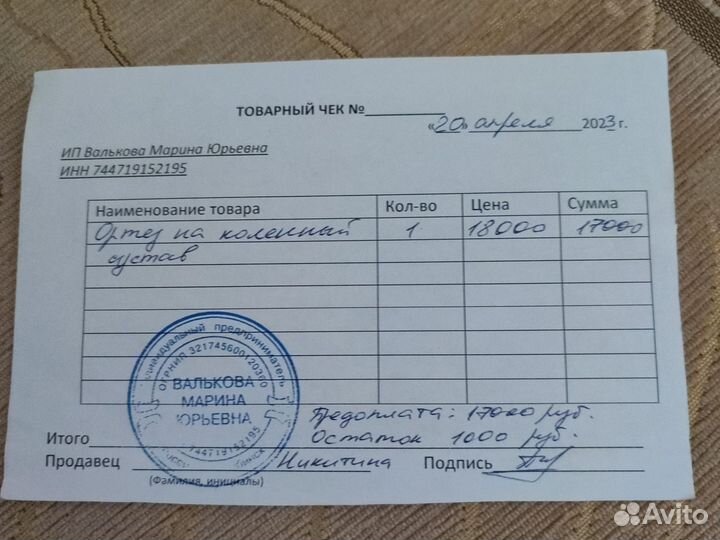 ТОВАРНЫЙ ЧЕК №
«20» апреля 2023 г.
ИП Валькова Марина Юрьевна
ИНН 744719152195
Наименование товара Кол-во Цена Сумма
Ортез на коленный 1 18000 17000
сустав
индивидуальный предприниматель
ОГРНИП 321745600120360
ВАЛЬКОВА
МАРИНА
ЮРЬЕВНА
744719152195
Предоплата: 17000 руб.
Итого Остаток 1000 руб.
Продавец Никитина Подпись
(Фамилия, инициалы)
Avito